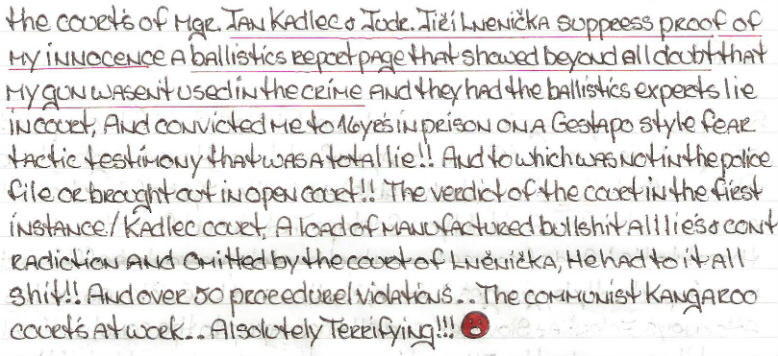 the courts of Mgr. Jan Kadlec & Judr. Jiří Lněnička suppress proof of
My innocence A ballistics report page that showed beyond all doubt that
My gun wasent used in the crime And they had the ballistics experts lie
in court, And convicted me to 16 yrs in prison on A Gestapo style fear
tactic testimony that was A total lie!! And to which was not in the police
file or brought out in open court!! The verdict of the court in the first
instance/Kadlec court, A load of manufactured bullshit All lies & cont
radiction And Omitted by the court of Lněnička, He had to it All
Shit!! And over 50 proceedurel violations.. The communist Kangaroo
courts At work.. Alsolutely Terrifying!!!